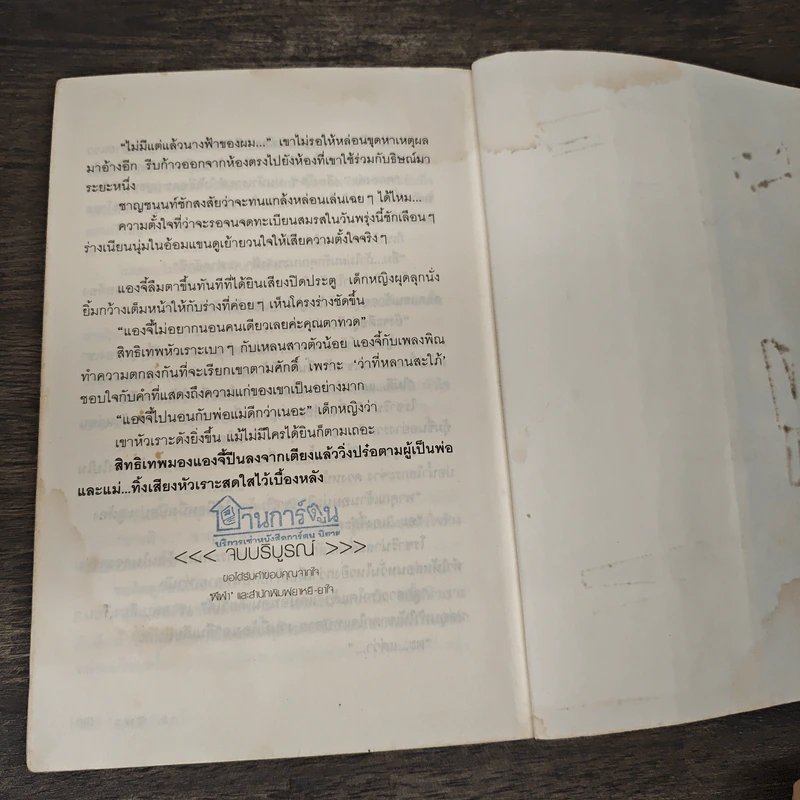 "ไม่มีแต่แล้วนางฟ้าของผม..." เขาไม่รอให้หล่อนขุดหาเหตุผล
มาอ้างอีก รีบก้าวออกจากห้องตรงไปยังห้องที่เขาใช้ร่วมกับธิษณ์มา
ระยะหนึ่ง
ชาญชนนท์ชักสงสัยว่าจะทนแกล้งหล่อนเล่นเฉยๆ ได้ไหม...
ความตั้งใจที่ว่าจะรอจนจดทะเบียนสมรสในวันพรุ่งนี้ชักเลือนๆ
ร่างเนียนนุ่มในอ้อมแขนดูเย้ายวนใจให้เสียความตั้งใจจริงๆ
แองจี้ลืมตาขึ้นทันทีที่ได้ยินเสียงปิดประตู เด็กหญิงผุดลุกนั่ง
ยิ้มกว้างเต็มหน้าให้กับร่างที่ค่อยๆ เห็นโครงร่างชัดขึ้น
"แองจี้ไม่อยากนอนคนเดียวเลยค่ะคุณตาทวด"
สิทธิเทพหัวเราะเบาๆ กับเหลนสาวตัวน้อย แองจี้กับเพลงพิณ
ทำความตกลงกันที่จะเรียกเขาตามศักดิ์ เพราะ 'ว่าที่หลานสะใภ้'
ชอบใจกับคำที่แสดงถึงความแก่ของเขาเป็นอย่างมาก
"แองจี้ไปนอนกับพ่อแม่ดีกว่าเนอะ" เด็กหญิงว่า
เขาหัวเราะดังยิ่งขึ้น แม้ไม่มีใครได้ยินก็ตามเถอะ
สิทธิเทพมองแองจี้ปีนลงจากเตียงแล้ววิ่งปร๋อตามผู้เป็นพ่อ
และแม่...ทิ้งเสียงหัวเราะสดใสไว้เบื้องหลัง
บ้านการ์ตูน
บริการเช่าหนังสือการ์ตูน นิยาย
<<< จบบริบูรณ์ >>>
ขอได้รับคำขอบคุณจากใจ
และสำนักพิมพ์ยาหยี-ยาใจ